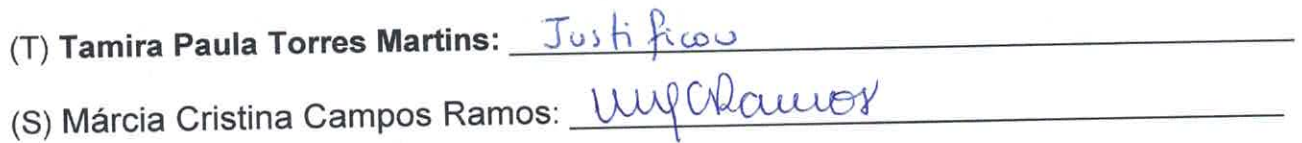 (T) Tamira Paula Torres Martins: Justificou
(S) Márcia Cristina Campos Ramos: MCRamos